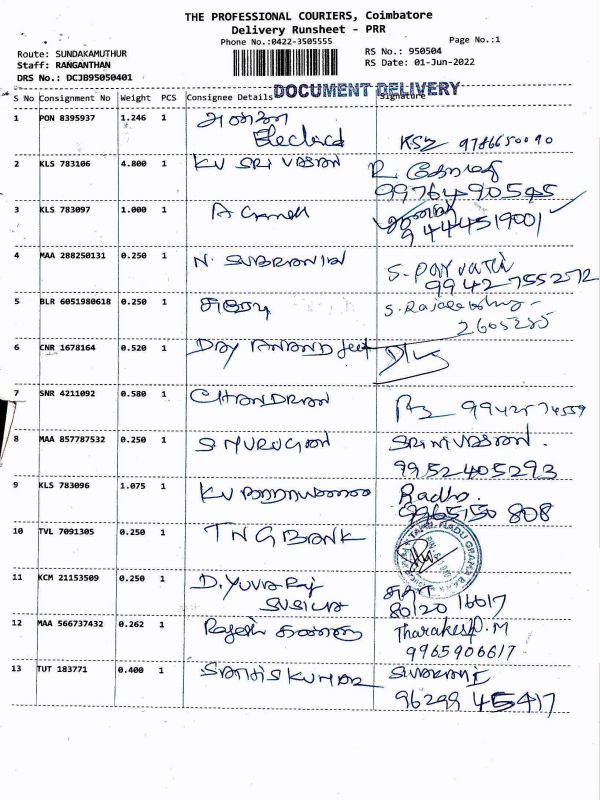 THE PROFESSIONAL COURIERS, Coimbatore
Delivery Runsheet - PRR
Phone No.:0422-3505555
Page No.:1
Route: SUNDAKAMUTHUR
RS No.: 950504
Staff: RANGANTHAN
RS Date: 01-Jun-2022
DRS No.: DCJB95050401
DOCUMENT DELIVERY
S No Consignment No Weight PCS Consignee Details Signature
1 PON 8395937 1.246 1
KSZ 9786650090
2 KLS 783106 4.800 1 KV SRI VASAN
9976490545
3 KLS 783097 1.000 1 A
9444519001
4 MAA 288250131 0.250 1 N.
S. PARVATHI
9942755272
5 BLR 6051980618 0.250 1
S.
2605285
6 CNR 1678164 0.520 1 DAY ANAND
7 SNR 4211092 0.580 1 CHANDRAN
8 MAA 857787532 0.250 1 S MURUGAN SRINIVASAN.
9952405293
9 KLS 783096 1.075 1 KV Radha.
9965150 808
10 TVL 7091305 0.250 1 TNG BANK
11 KCM 21153509 0.250 1 D. YUVARAJ
SUSILA 80120 16617
12 MAA 566737432 0.262 1 Rajesh Tharakesh P. M
9965906617
13 TUT 183771 0.400 1 SATHISKUMAR SIVARAMI
96299 45417